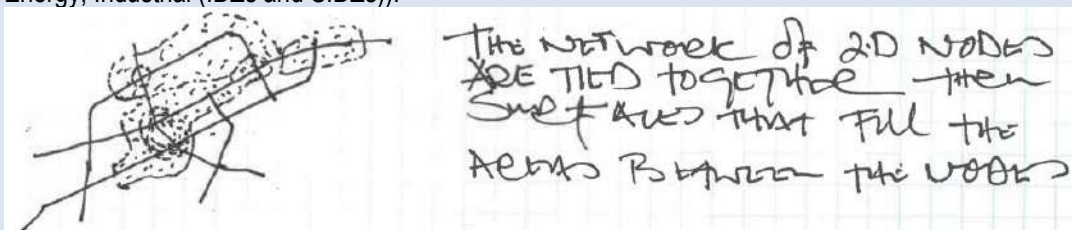 Energy, Industrial (IDZs and SIDZs)).
THE NETWORK OF 2D NODES
ARE TIED TOGETHER THEN
SURFACES THAT FILL THE
AREAS BETWEEN THE NODES